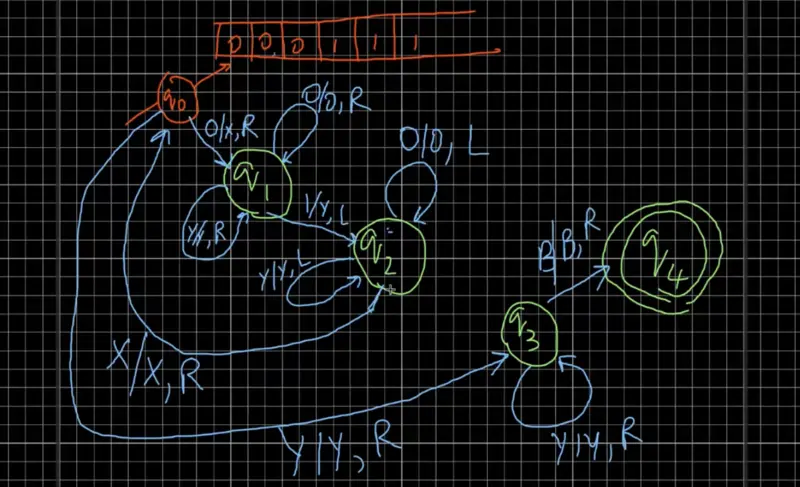 0 0 0 1 1 1
q0
0/x, R
0/0, R
q1
Y/Y, R
1/Y, L
0/0, L
q2
Y/Y, L
B/B, R
q4
q3
X/X, R
Y/Y, R
Y/Y, R